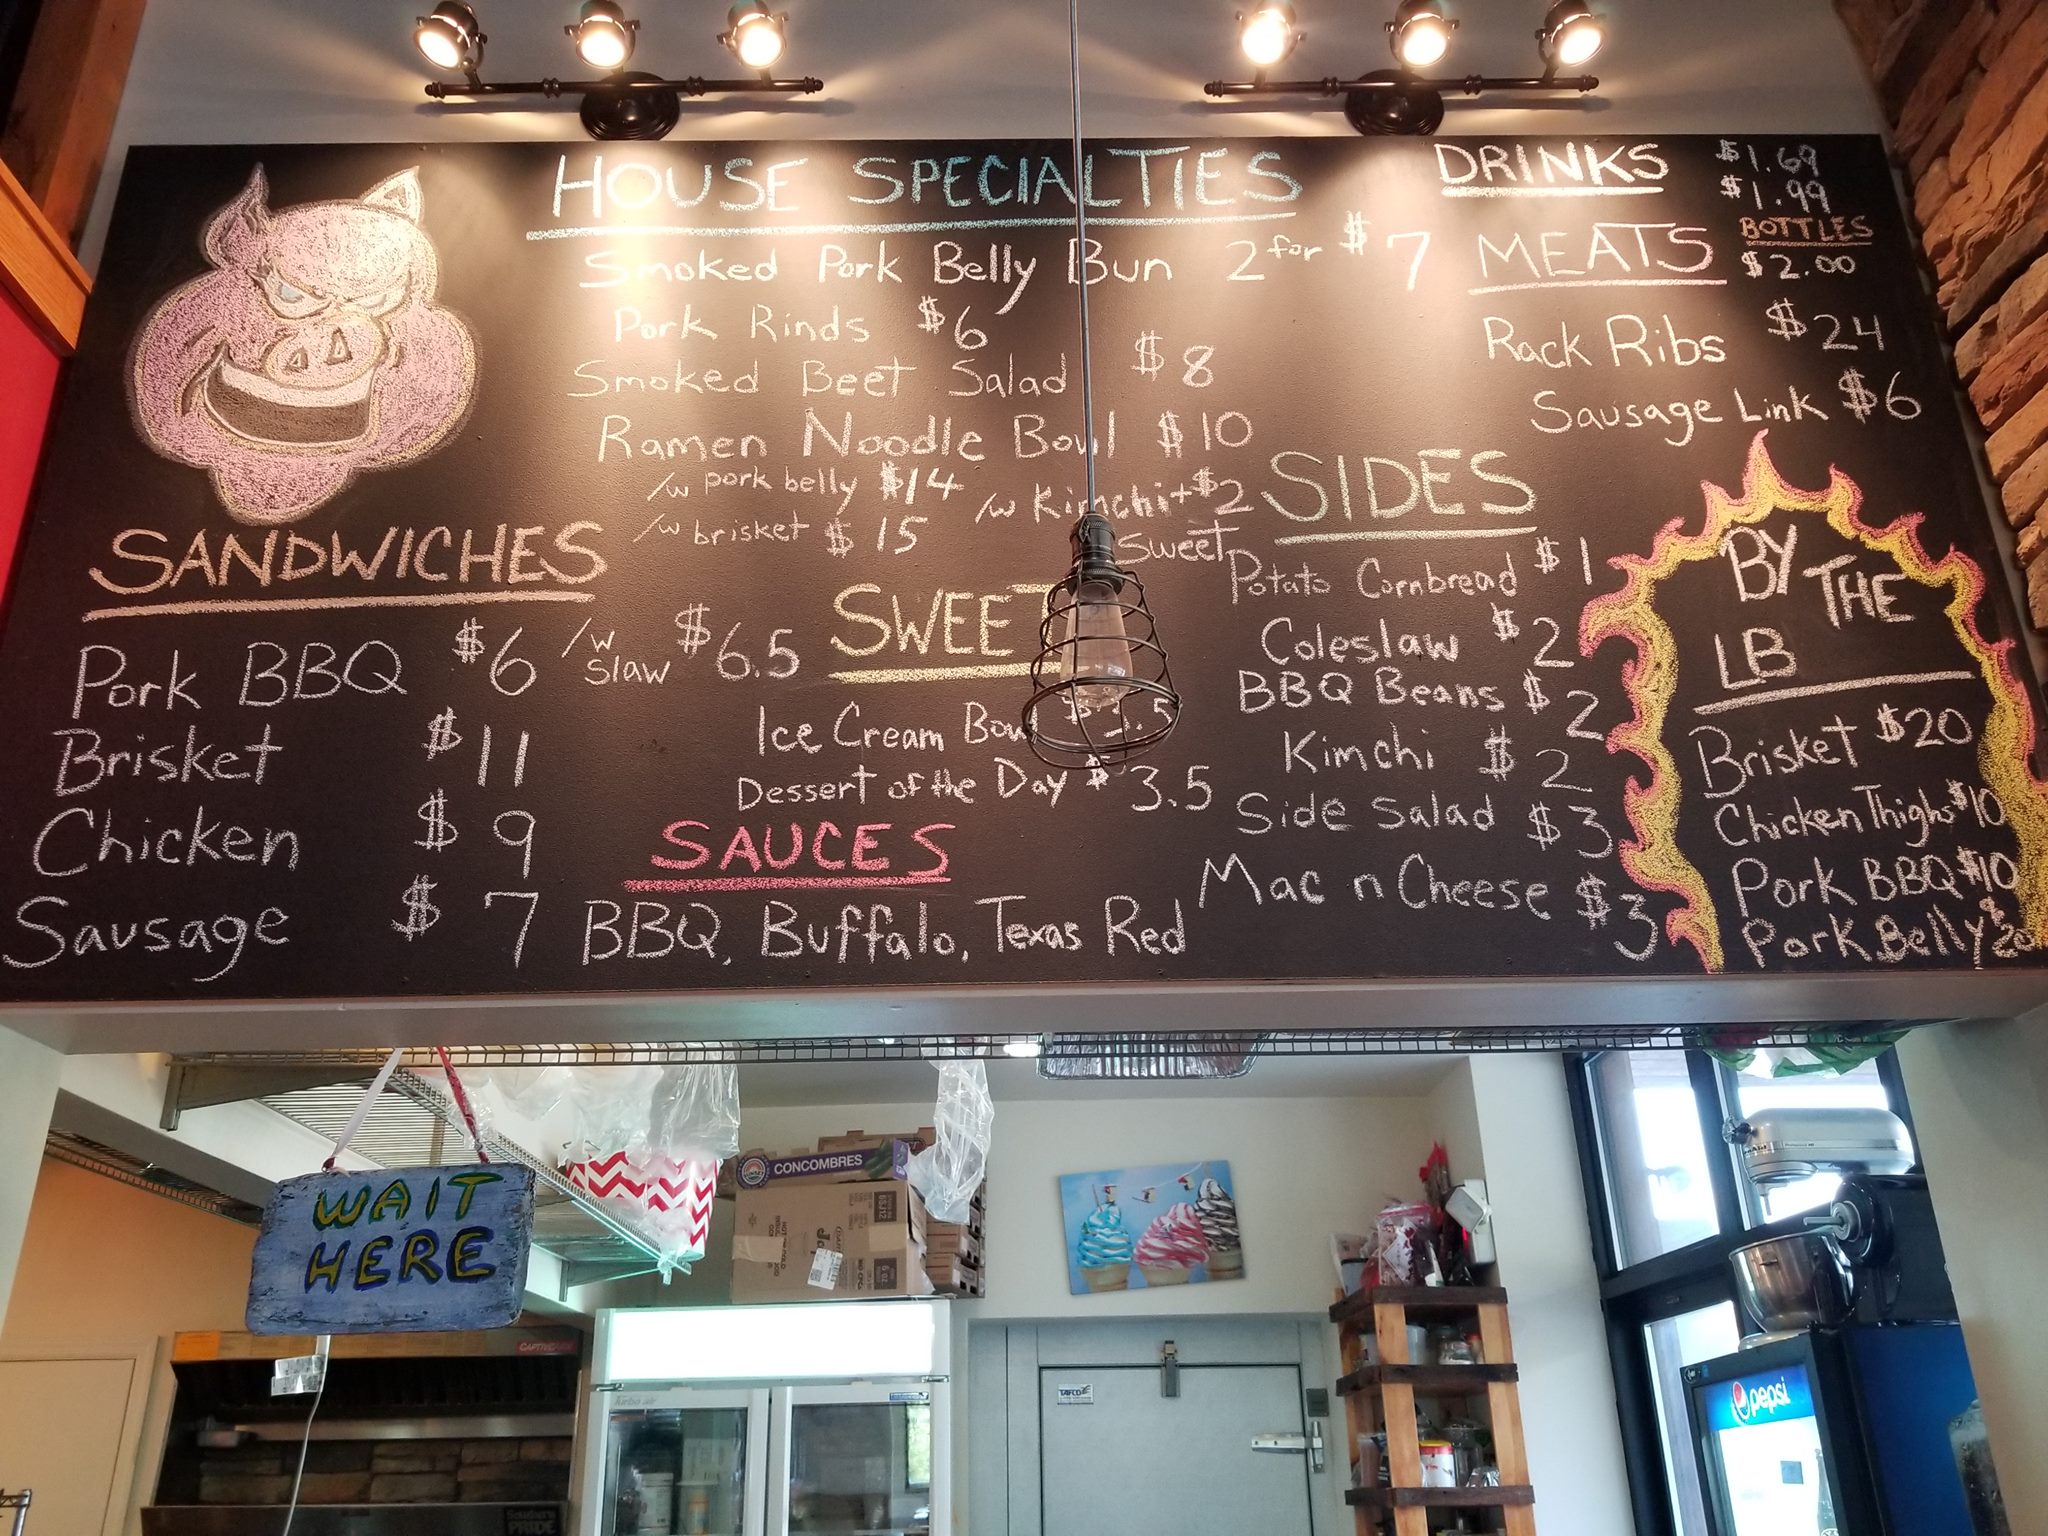 HOUSE SPECIALTIES
Smoked Pork Belly Bun 2 for $7
Pork Rinds $6
Smoked Beet Salad $8
Ramen Noodle Bowl $10
/w pork belly $14 /w Kimchi + $2
/w brisket $15
DRINKS $1.69
$1.99
BOTTLES
$2.00
MEATS
Rack Ribs $24
Sausage Link $6
SANDWICHES
Pork BBQ $6 /w slaw $6.5
Brisket $11
Chicken $9
Sausage $7
SWEET
Ice Cream Bowl
Dessert of the Day $3.5
SAUCES
BBQ, Buffalo, Texas Red
SIDES
Sweet
Potato Cornbread $1
Coleslaw $2
BBQ Beans $2
Kimchi $2
Side Salad $3
Mac n Cheese $3
BY THE
LB
Brisket $20
Chicken Thighs $10
Pork BBQ $10
Pork Belly $20
WAIT
HERE
CONCOMBRES
CAPTIVEAIRE
Turbo air
TAFCO
pepsi
Southern
PRIDE